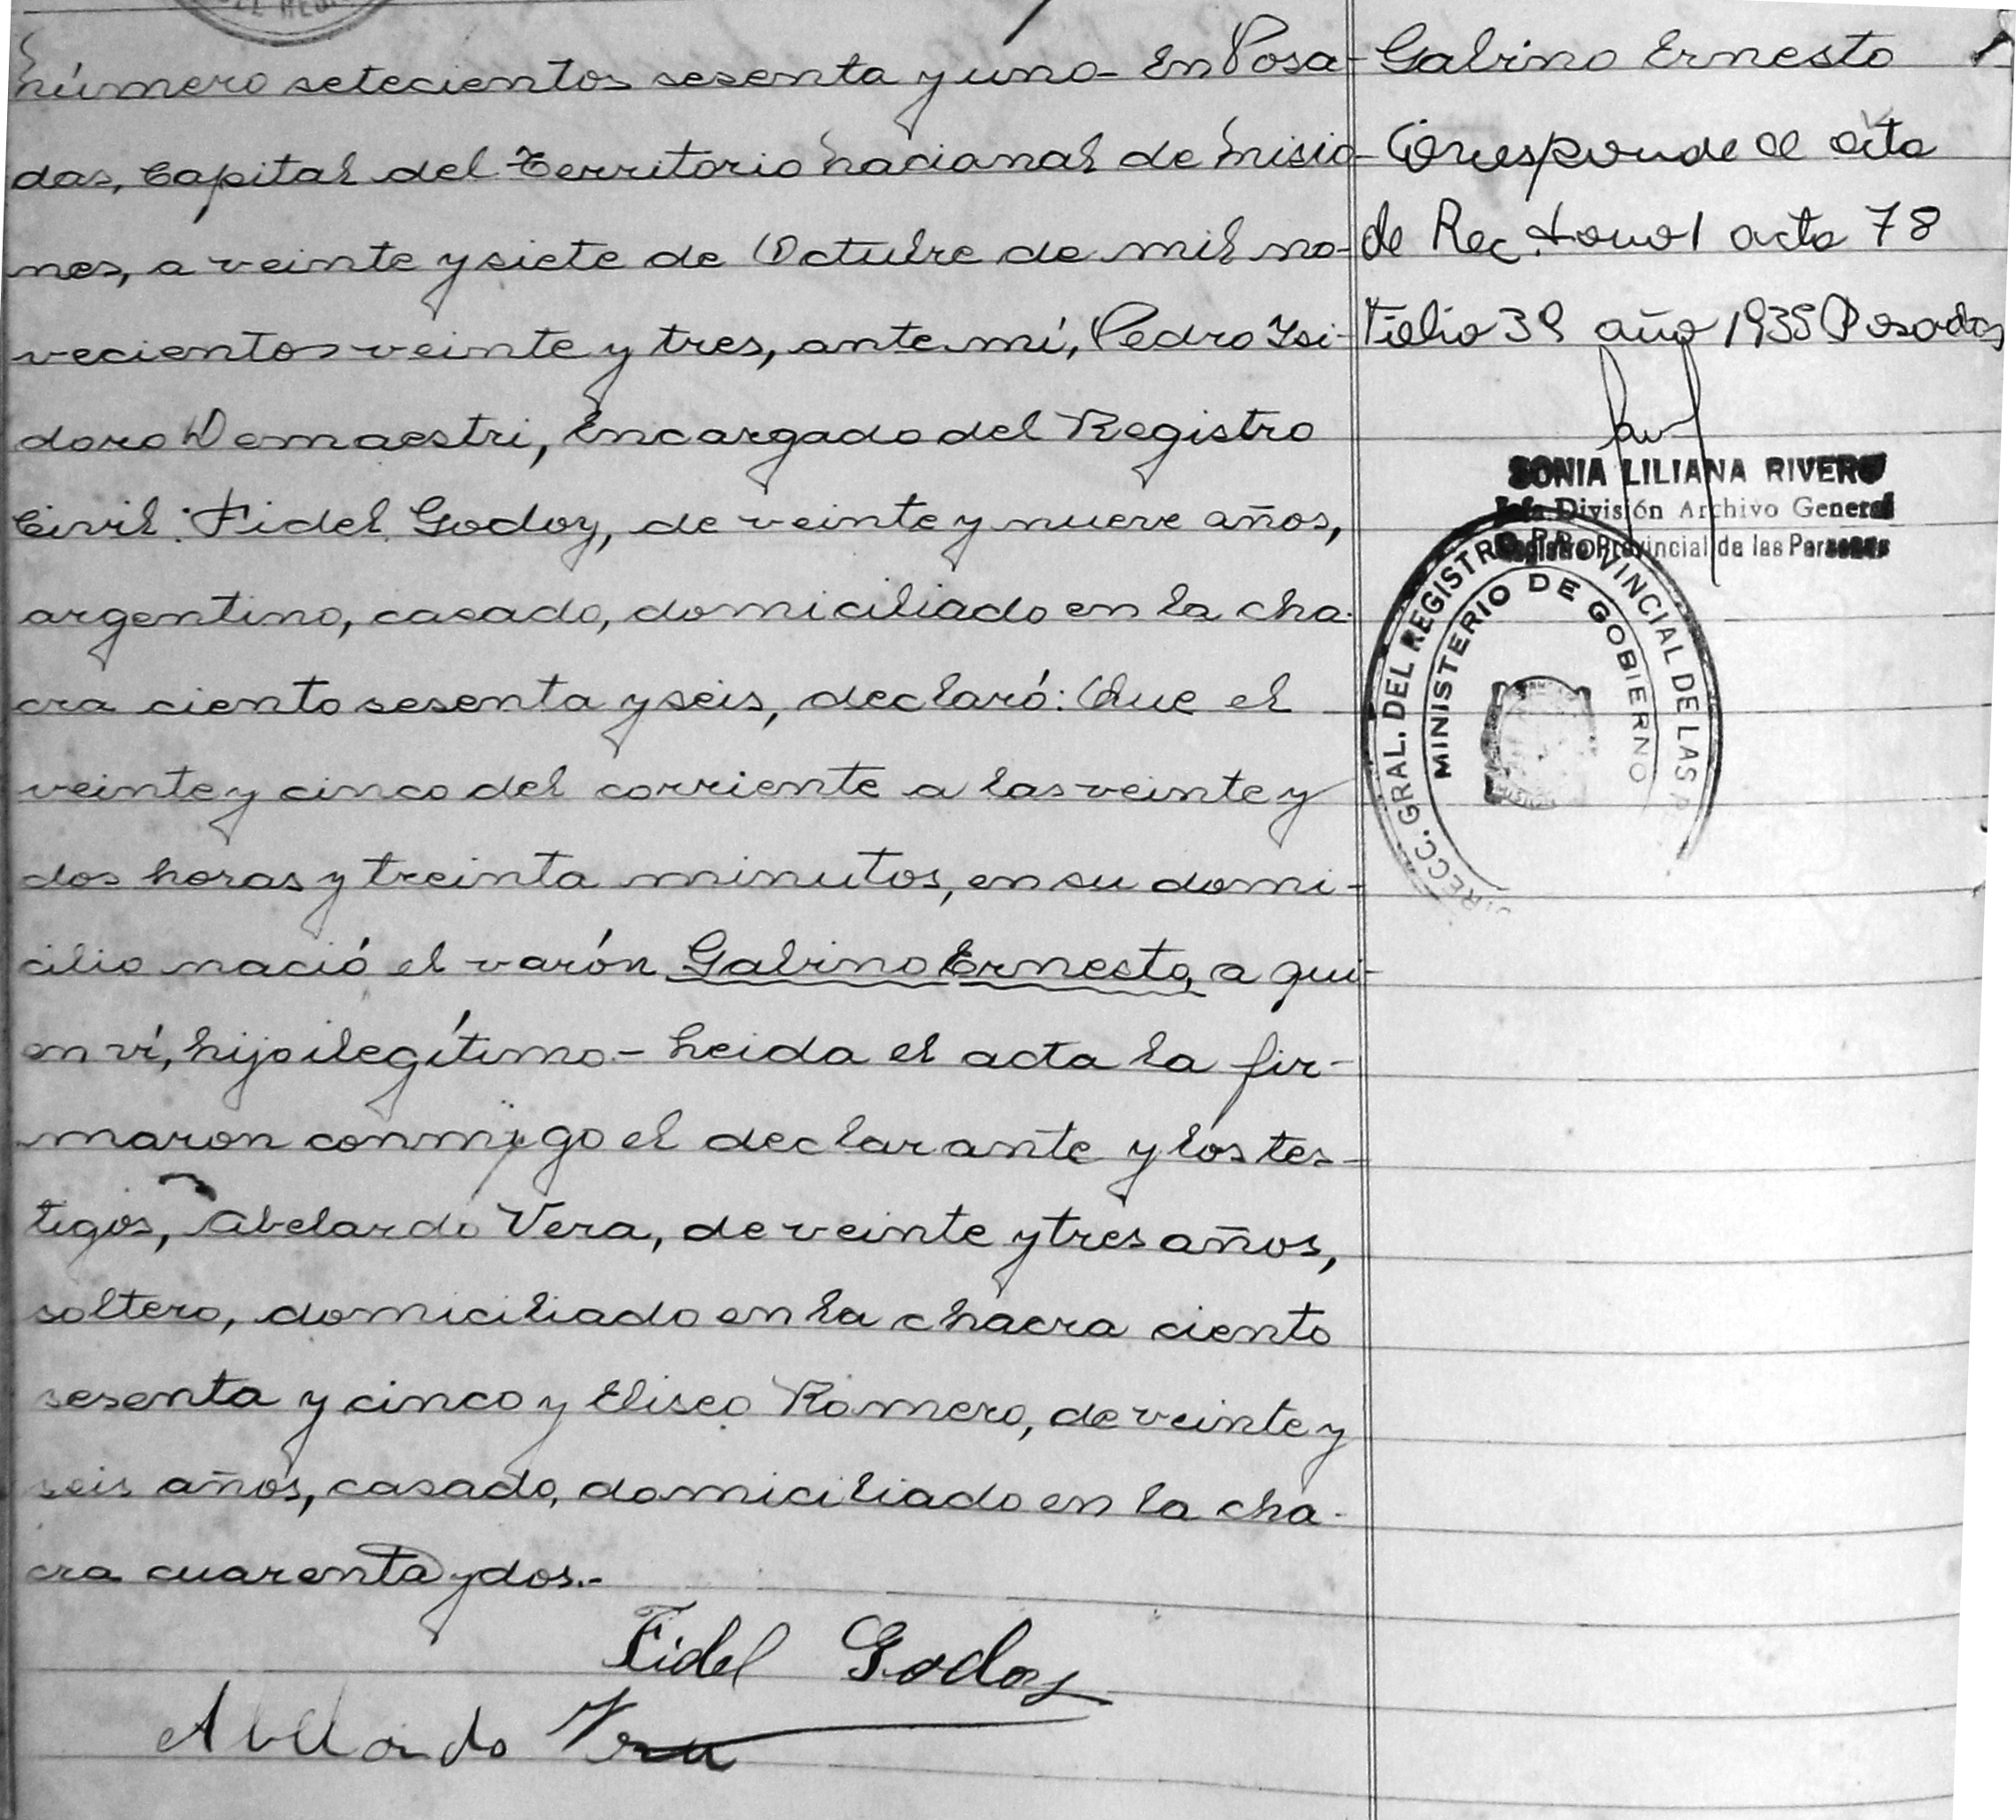 número setecientos sesenta y uno - En Posa-
das, Capital del Territorio Nacional de Misio-
nes, a veinte y siete de Octubre de mil no-
vecientos veinte y tres, ante mí, Pedro Isi-
doro Demaestri, Encargado del Registro
Civil. Fidel Godoy, de veinte y nueve años,
argentino, casado, domiciliado en la cha-
cra ciento sesenta y seis, declaró: Que el
veinte y cinco del corriente a las veinte y
dos horas y treinta minutos, en su domi-
cilio nació el varón Gabino Ernesto, a qui-
en ví, hijo ilegítimo - Leida el acta la fir-
maron conmigo el declarante y los tes-
tigos, Abelardo Vera, de veinte y tres años,
soltero, domiciliado en la chacra ciento
sesenta y cinco y Eliseo Romero, de veinte y
seis años, casado, domiciliado en la cha-
cra cuarenta y dos.-
Fidel Godoy
Abelardo Vera
Gabino Ernesto
Corresponde al acta
de Rec. Tomo 1 acta 78
Folio 39 año 1935 Posadas
SONIA LILIANA RIVERO
Jefa División Archivo General
Registro Provincial de las Personas
DIRECC. GRAL. DEL REGISTRO PROVINCIAL DE LAS P
MINISTERIO DE GOBIERNO